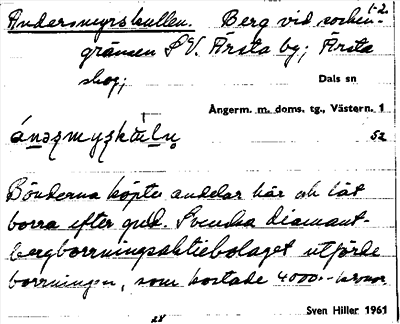 1-2.
Andersmyrskullen. Berg vid socken-
gränsen S V. Ärsta by; Ärsta
skog;
Dals sn
Ångerm. m. doms. tg., Västern. 1
52
Bönderna köpte andelar här och lät
borra efter guld. Svenska diamant-
bergborrningsaktiebolaget utförde
borrningen, som kostade 4000:- kronor.
Sven Hiller 1961
28